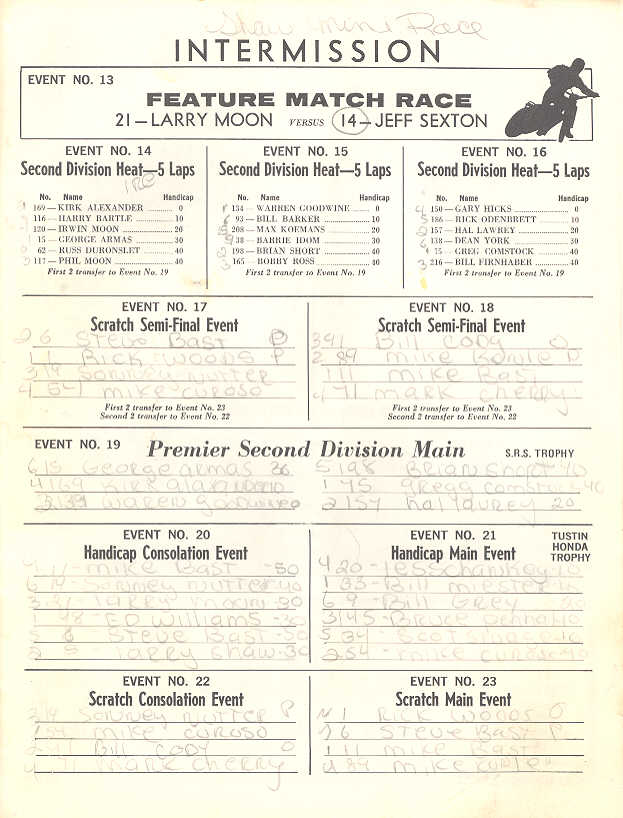 Shaw Mini Race
INTERMISSION
EVENT NO. 13
FEATURE MATCH RACE
21—LARRY MOON VERSUS 14—JEFF SEXTON
EVENT NO. 14
Second Division Heat—5 Laps
No. Name Handicap
169—KIRK ALEXANDER 0
116—HARRY BARTLE 10
120—IRWIN MOON 20
15—GEORGE ARMAS 30
62—RUSS DURONSLET 40
117—PHIL MOON 40
First 2 transfer to Event No. 19
EVENT NO. 15
Second Division Heat—5 Laps
No. Name Handicap
134—WARREN GOODWINE 0
93—BILL BARKER 10
208—MAX KOEMANS 20
38—BARRIE IDOM 30
198—BRIAN SHORT 40
165—BOBBY ROSS 40
First 2 transfer to Event No. 19
EVENT NO. 16
Second Division Heat—5 Laps
No. Name Handicap
150—GARY HICKS 0
186—RICK ODENBRETT 10
157—HAL LAWREY 20
138—DEAN YORK 30
75—GREG COMSTOCK 40
216—BILL FIRNHABER 40
First 2 transfer to Event No. 19
EVENT NO. 17
Scratch Semi-Final Event
2 6 STEVE BAST
RICK WOODS P
SONNEY NUTTER
4 54 mike CUROSO
First 2 transfer to Event No. 23
Second 2 transfer to Event No. 22
EVENT NO. 18
Scratch Semi-Final Event
Bill CODY O
2 89 mike P
1 11 mike BAST
4 71 mark cherry
First 2 transfer to Event No. 23
Second 2 transfer to Event No. 22
EVENT NO. 19 Premier Second Division Main S.R.S. TROPHY
6 15 George armas
4 169 Kirk
5 198 BRIAN SHORT 40
1 75 gregg
2 157 20
EVENT NO. 20
Handicap Consolation Event
mike BAST -50
SONNEY NUTTER
LARRY moon -30
ED WILLIAMS -30
5 6 STEVE BAST -50
larry shaw -30
EVENT NO. 21
Handicap Main Event
TUSTIN
HONDA
TROPHY
4 20
1 33 - Bill
6 9 - Bill Grey 20
3 45 - Bruce penhall 40
5 34 - Scot
2 54 - mike CUROSO 40
EVENT NO. 22
Scratch Consolation Event
SONNEY NUTTER P
mike CUROSO
Bill CODY O
4 71 mark cherry
EVENT NO. 23
Scratch Main Event
1 RICK WOODS O
6 STEVE BAST P
1 11 mike BAST
mike